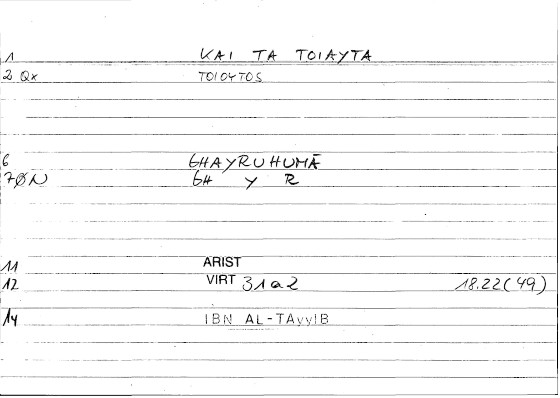 1 KAI TA TOIAYTA
2 Qx TOIOYTOS
6 GHAYRUHUMĀ
7ØN GH Y R
11 ARIST
12 VIRT 31a2 18.22(49)
14 IBN AL-TAyyIB